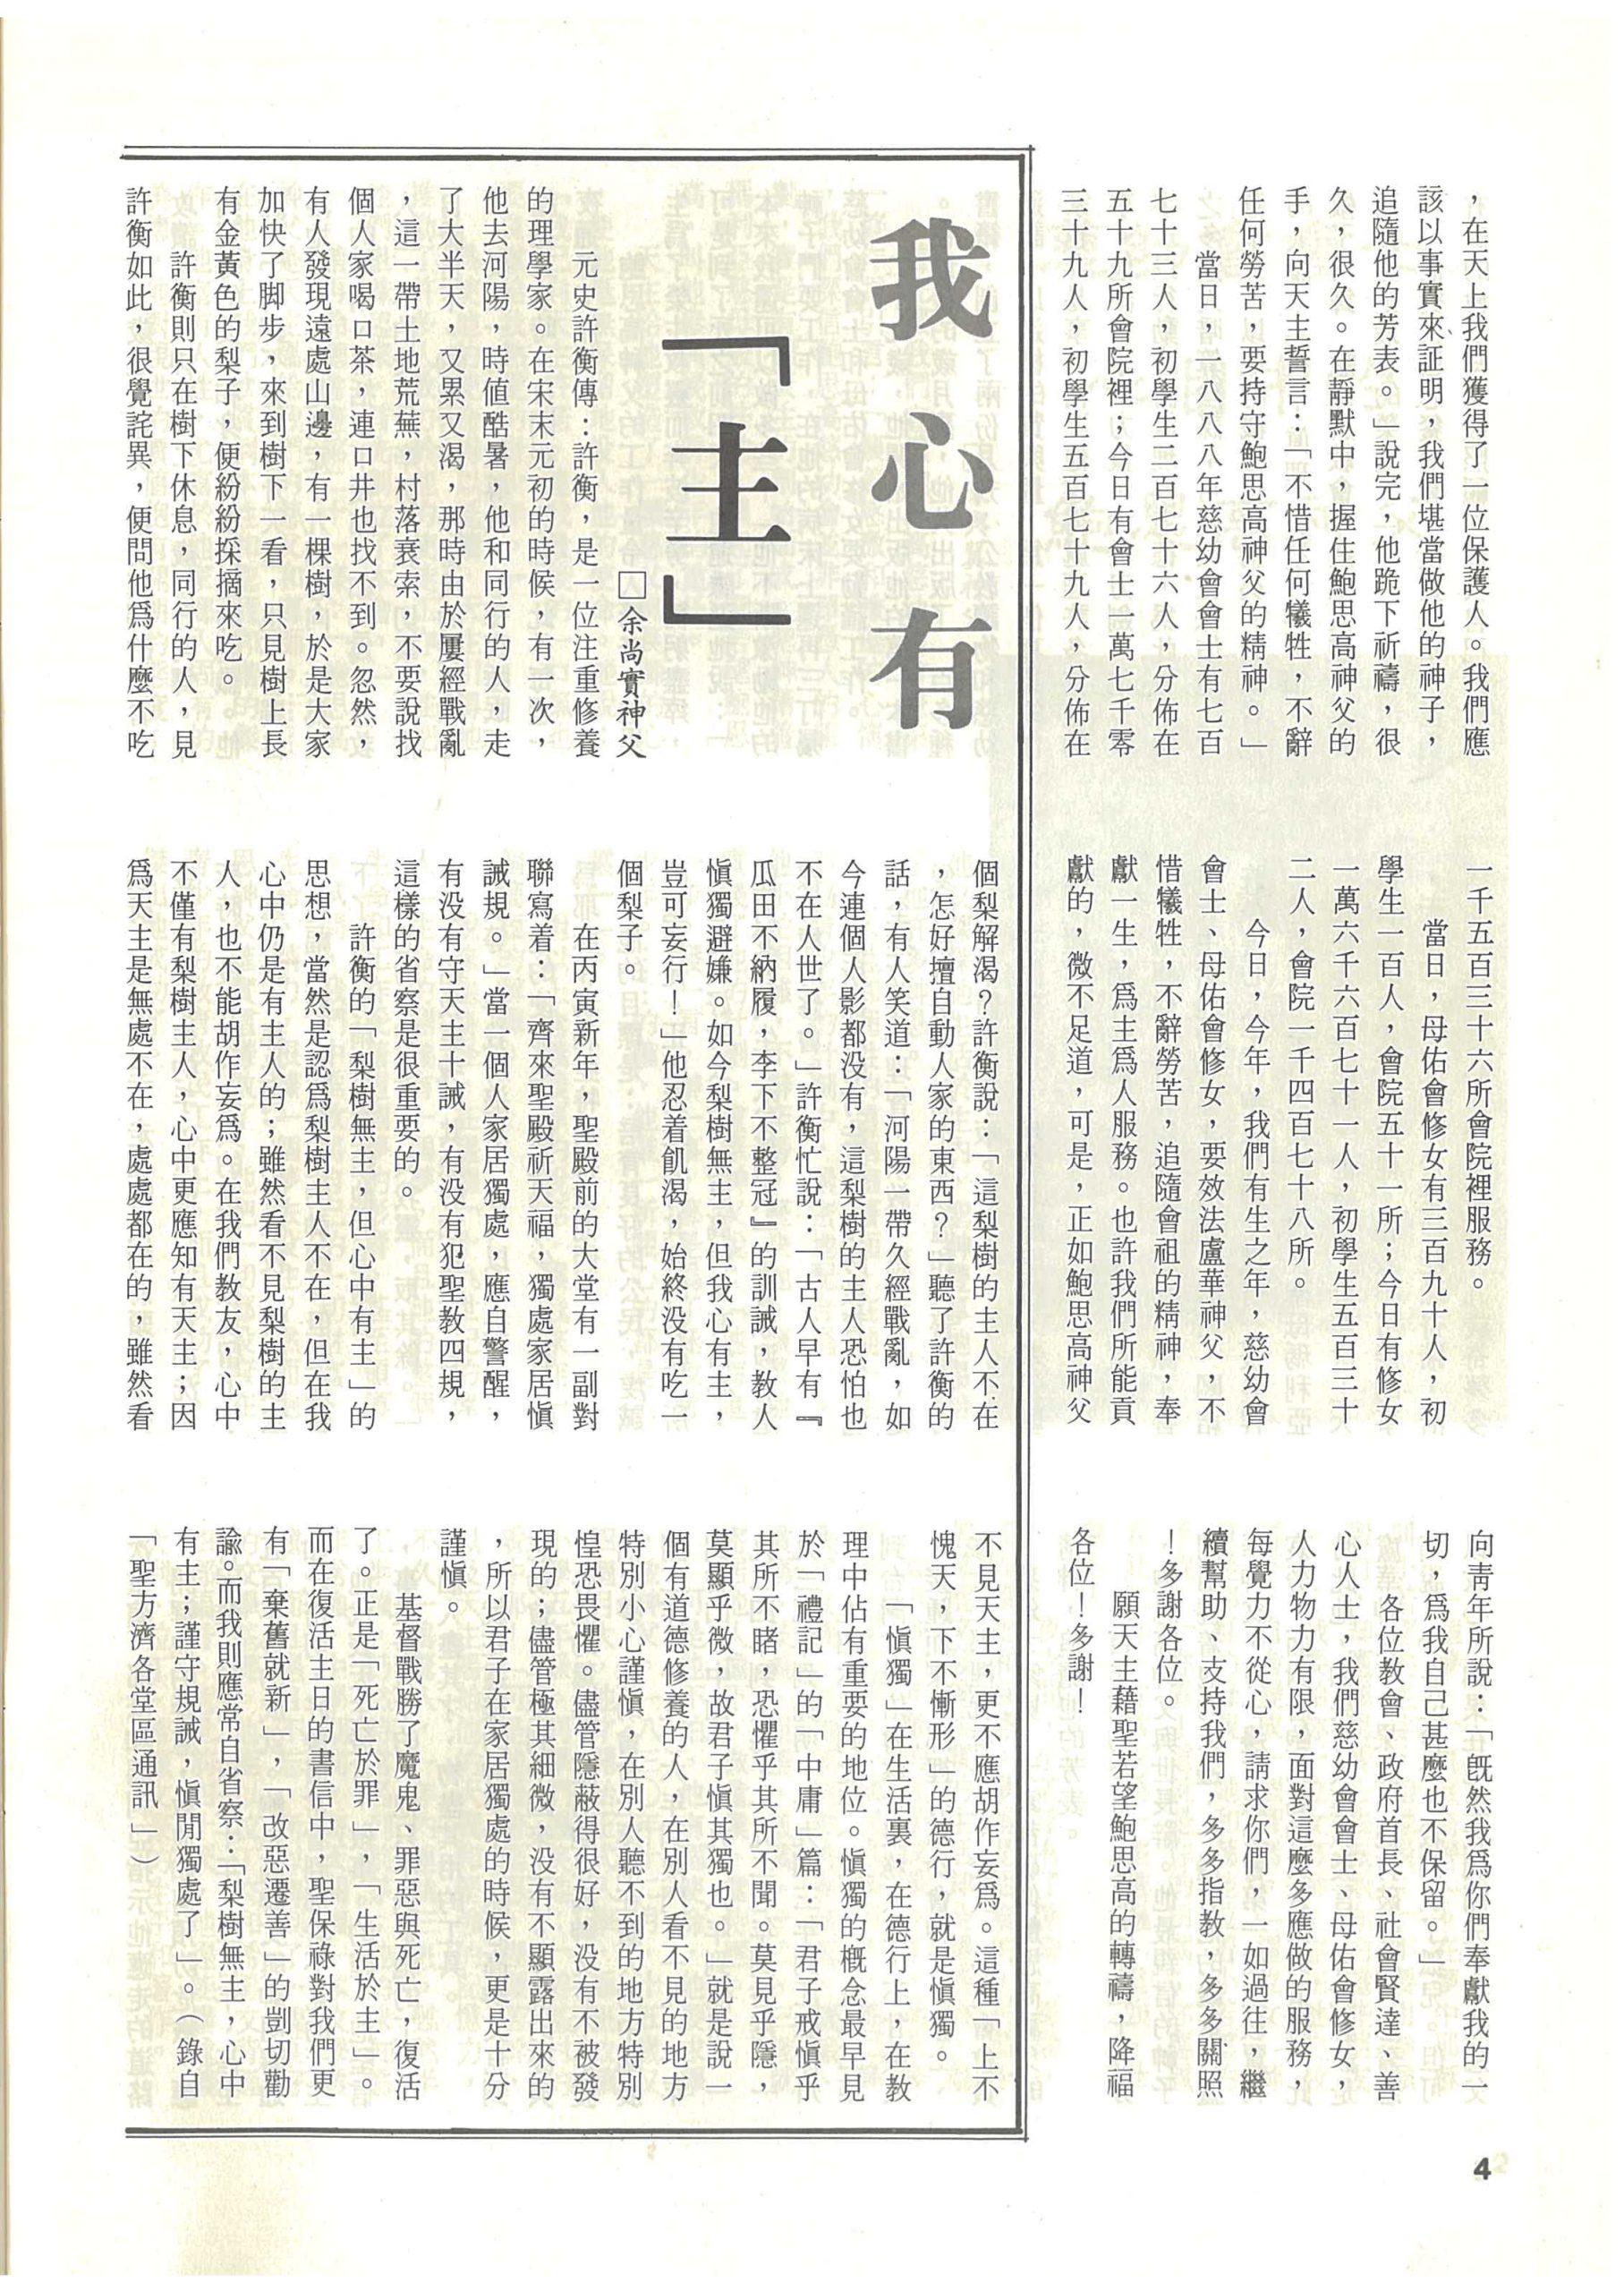 ，在天上我們獲得了一位保護人。我們應
該以事實來証明，我們堪當做他的神子，
追隨他的芳表。」說完，他跪下祈禱，很
久，很久。在靜默中，握住鮑思高神父的
手，向天主誓言：「不惜任何犧牲，不辭
任何勞苦，要持守鮑思高神父的精神。」
當日，一八八八年慈幼會會士有七百
七十三人，初學生二百七十六人，分佈在
五十九所會院裡；今日有會士一萬七千零
三十九人，初學生五百七十九人，分佈在
一千五百三十六所會院裡服務。
當日，母佑會修女有三百九十人，初
學生一百人，會院五十一所；今日有修女
一萬六千六百七十一人，初學生五百三十
二人，會院一千四百七十八所。
今日，今年，我們有生之年，慈幼會
會士、母佑會修女，要效法盧華神父，不
惜犧牲，不辭勞苦，追隨會祖的精神，奉
獻一生，爲主爲人服務。也許我們所能貢
獻的，微不足道，可是，正如鮑思高神父
向青年所說：「既然我爲你們奉獻我的一
切，爲我自己甚麼也不保留。」
各位教會、政府首長、社會賢達、善
心人士，我們慈幼會會士、母佑會修女，
人力物力有限，面對這麼多應做的服務，
每覺力不從心，請求你們，一如過往，繼
續幫助、支持我們，多多指教，多多關照
！多謝各位。
願天主藉聖若望鮑思高的轉禱，降福
各位！多謝！
我心有
「主」
□余尚實神父
元史許衡傳：許衡，是一位注重修養
的理學家。在宋末元初的時候，有一次，
他去河陽，時值酷暑，他和同行的人，走
了大半天，又累又渴，那時由於屢經戰亂
，這一帶土地荒蕪，村落衰索，不要說找
個人家喝口茶，連口井也找不到。忽然，
有人發現遠處山邊，有一棵樹，於是大家
加快了脚步，來到樹下一看，只見樹上長
有金黃色的梨子，便紛紛採摘來吃。
許衡則只在樹下休息，同行的人，見
許衡如此，很覺詫異，便問他爲什麼不吃
個梨解渴？許衡說：「這梨樹的主人不在
，怎好擅自動人家的東西？」聽了許衡的
話，有人笑道：「河陽一帶久經戰亂，如
今連個人影都没有，這梨樹的主人恐怕也
不在人世了。」許衡忙說：「古人早有『
瓜田不納履，李下不整冠』的訓誡，教人
愼獨避嫌。如今梨樹無主，但我心有主，
豈可妄行！」他忍着飢渴，始終没有吃一
個梨子。
在丙寅新年，聖殿前的大堂有一副對
聯寫着：「齊來聖殿祈天福，獨處家居愼
誡規。」當一個人家居獨處，應自警醒，
有没有守天主十誡，有没有犯聖教四規，
這樣的省察是很重要的。
許衡的「梨樹無主，但心中有主」的
思想，當然是認爲梨樹主人不在，但在我
心中仍是有主人的；雖然看不見梨樹的主
人，也不能胡作妄爲。在我們教友，心中
不僅有梨樹主人，心中更應知有天主；因
爲天主是無處不在，處處都在的，雖然看
不見天主，更不應胡作妄爲。這種「上不
愧天，下不慚形」的德行，就是愼獨。
「愼獨」在生活裏，在德行上，在教
理中佔有重要的地位。愼獨的槪念最早見
於「禮記」的「中庸」篇：「君子戒愼乎
其所不睹，恐懼乎其所不聞。莫見乎隱，
莫顯乎微，故君子愼其獨也。」就是說一
個有道德修養的人，在別人看不見的地方
特別小心謹愼，在別人聽不到的地方特別
惶恐畏懼。儘管隱蔽得很好，没有不被發
現的；儘管極其細微，没有不顯露出來的
，所以君子在家居獨處的時候，更是十分
謹愼。
基督戰勝了魔鬼、罪惡與死亡，復活
了。正是「死亡於罪」，「生活於主」。
而在復活主日的書信中，聖保祿對我們更
有「棄舊就新」，「改惡遷善」的剴切勸
諭。而我則應常自省察：「梨樹無主，心中
有主；謹守規誡，愼閒獨處了」。（錄自
「聖方濟各堂區通訊」）
4